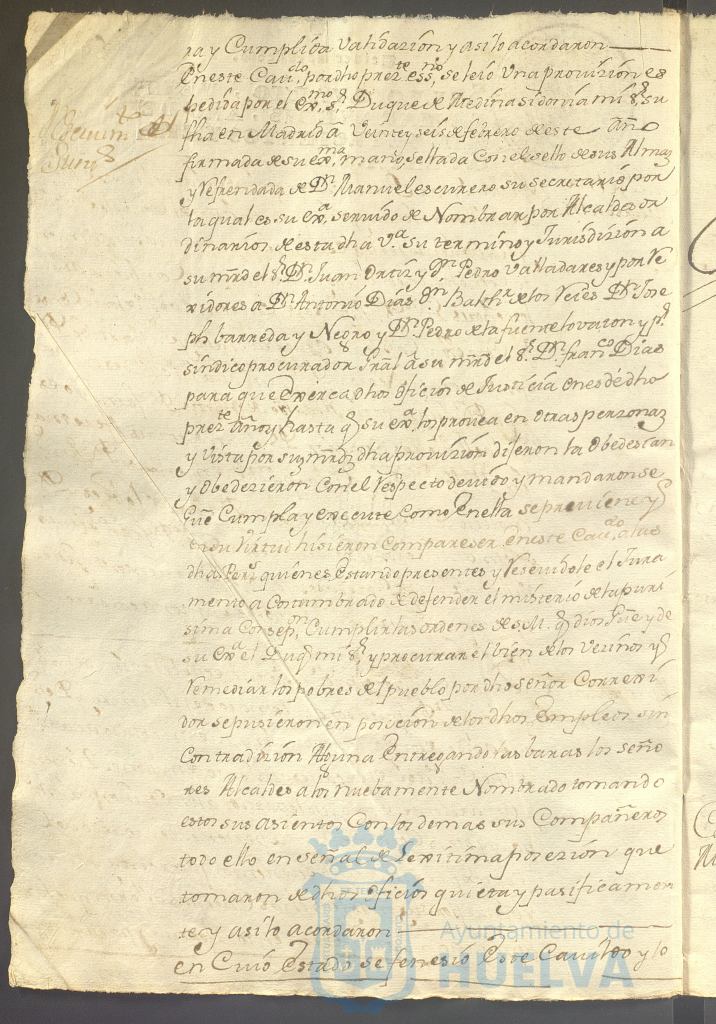 ra y Cumplida Validazion y asi lo acordaron
En este Cav.do por dho prez.te ess.no se leió Una provizion es
pedida por el ex.mo s.r Duque de Medinasidonia mi s.r su
fha en Madrid â Veinte y seis de febrero de este Año
firmada de su ex.ma mano, sellada Con el sello de sus Almaz
y Refrendada de D.n Manuel escurero su secretario por
la qual es su ex.a servido de Nombrar por Alcaldes or
dinarios de esta dha V.a su termino y Jurisdizion a
su mrd el s.r D.n Juan Ortiz y D.n Pedro Valladares y por Re
xidores a D.n Antonio Dias D.n Balth.r de los Reies D.n Jose
ph barreda y Negro y D.n Pedro de la fuente lovaton y p.r
sindico procurador Gral â su mrd el s.r D.n fran.co Dias
para que Exerca dhos ofisios de Justicia en es de dho
prez.te Año y hasta q su ex.a los provea en otras perzonaz
y Vista por sus mrdz dha provizion dijeron la Obedescan
y Obedezieron Con el Respecto devido y mandaron se
Gûe Cumpla y execute como En ella se previene y
en su Virtud hisieron Compareser en este Cav.do a las
dhas Pers.s quienes Estando presentes y Resevidole el Jura
mento acostumbrado de defender el misterio de la puri
sima Consep.n Cumplir las ordenes de S.M. q dios Gûe y de
su ex.a el Duq mi s.r y procurar el bien de los Vezinos y
Remediar los pobres del pueblo por dho señor Correxi
dor se pusieron en posecion de los dhos Empleos sin
Contradizion Alguna Entregando las baras los seño
res Alcaldes a los nuebamente Nombrado tomando
estos sus asientos Con los demas sus Compañeros
todo ello en señal de Lexitima posezion que
tomaron de dhos ofisios quieta y pasificamen
te y asi lo acordaron
en Cuio Estado se fenesió Este Cavildo y lo
Ayuntamiento de
HUELVA